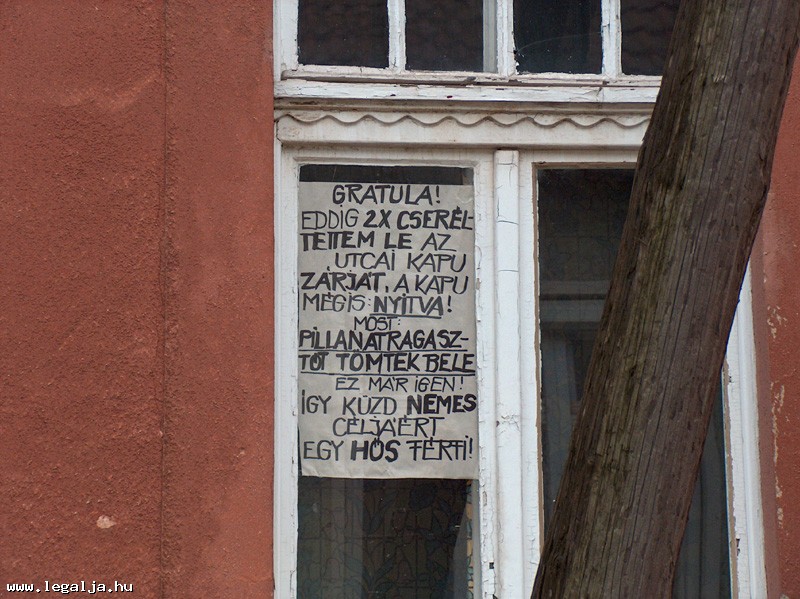 GRATULA!
EDDIG 2X CSERÉL-
TETTEM LE AZ
UTCAI KAPU
ZÁRJÁT, A KAPU
MÉGIS: NYITVA!
MOST:
PILLANATRAGASZ-
TÓT TÖMTEK BELE
EZ MÁR IGEN!
ÍGY KÜZD NEMES
CÉLJÁÉRT
EGY HŐS FÉRFI!
www.legalja.hu